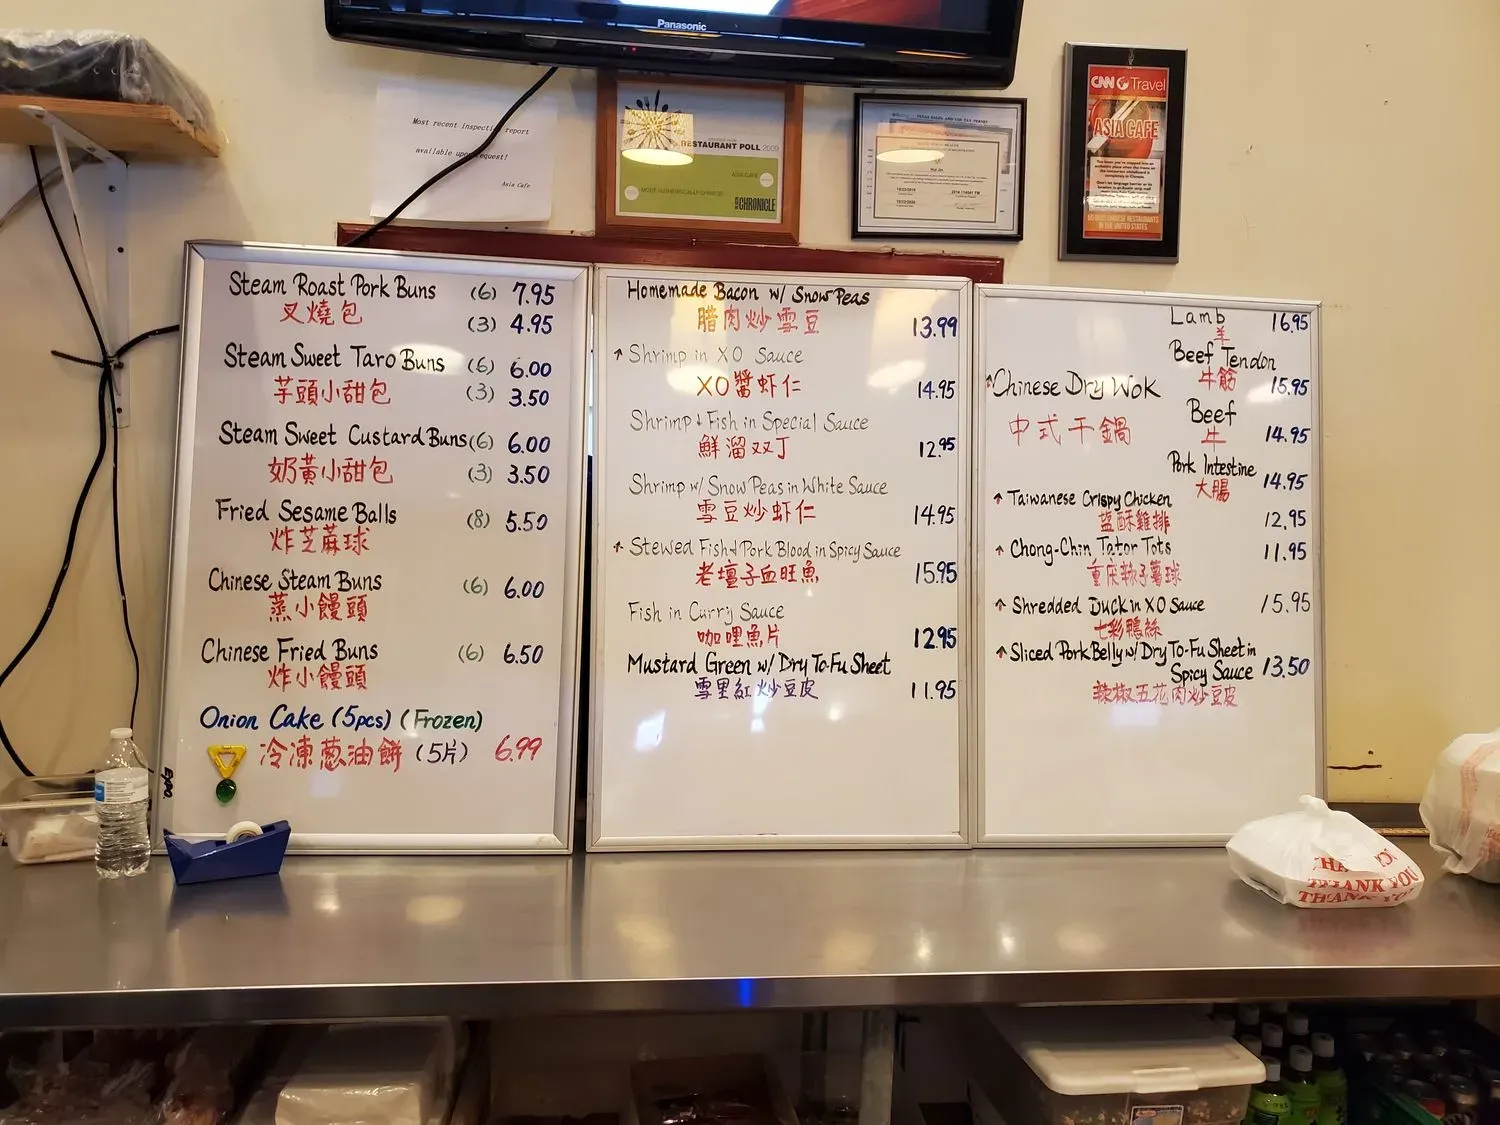 Panasonic
Most recent inspection report
available upon request!
Asia Cafe
RESTAURANT POLL 2009
ASIA CAFE
MOST AUTHENTICALLY CHINESE
CHRONICLE
TEXAS SALES AND USE TAX PERMIT
CNN Travel
ASIA CAFE
50 BEST CHINESE RESTAURANTS
IN THE UNITED STATES
Steam Roast Pork Buns (6) 7.95
叉燒包 (3) 4.95
Steam Sweet Taro Buns (6) 6.00
芋頭小甜包 (3) 3.50
Steam Sweet Custard Buns (6) 6.00
奶黃小甜包 (3) 3.50
Fried Sesame Balls (8) 5.50
炸芝蔴球
Chinese Steam Buns (6) 6.00
蒸小饅頭
Chinese Fried Buns (6) 6.50
炸小饅頭
Onion Cake (5pcs) (Frozen)
冷凍葱油餅 (5片) 6.99
EXPO
Homemade Bacon w/ Snow Peas
腊肉炒雪豆 13.99
↑ Shrimp in XO Sauce
XO醬虾仁 14.95
Shrimp & Fish in Special Sauce
鮮溜双丁 12.95
Shrimp w/ Snow Peas in White Sauce
雪豆炒虾仁 14.95
↑ Stewed Fish & Pork Blood in Spicy Sauce
老壇子血旺魚 15.95
Fish in Curry Sauce
咖哩魚片 12.95
Mustard Green w/ Dry To-Fu Sheet
雪里紅炒豆皮 11.95
Lamb 16.95
羊
Beef Tendon
牛筋 15.95
↑Chinese Dry Wok
中式干鍋
Beef
牛 14.95
Pork Intestine
大腸 14.95
↑ Taiwanese Crispy Chicken
盐酥雞排 12.95
↑ Chong-Chin Tator Tots 11.95
重庆辣子薯球
↑ Shredded Duck in XO Sauce 15.95
七彩鴨絲
↑ Sliced Pork Belly w/ Dry To-Fu Sheet in
Spicy Sauce 13.50
辣椒五花肉炒豆皮
THANK YOU
THANK YOU